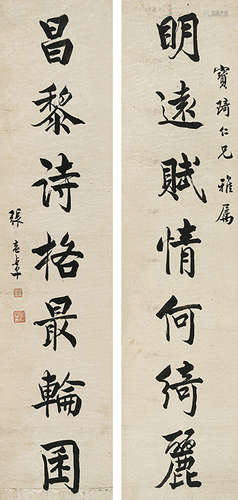 明遠賦情何綺麗
寶琦仁兄雅屬
昌黎诗格最輪囷
張